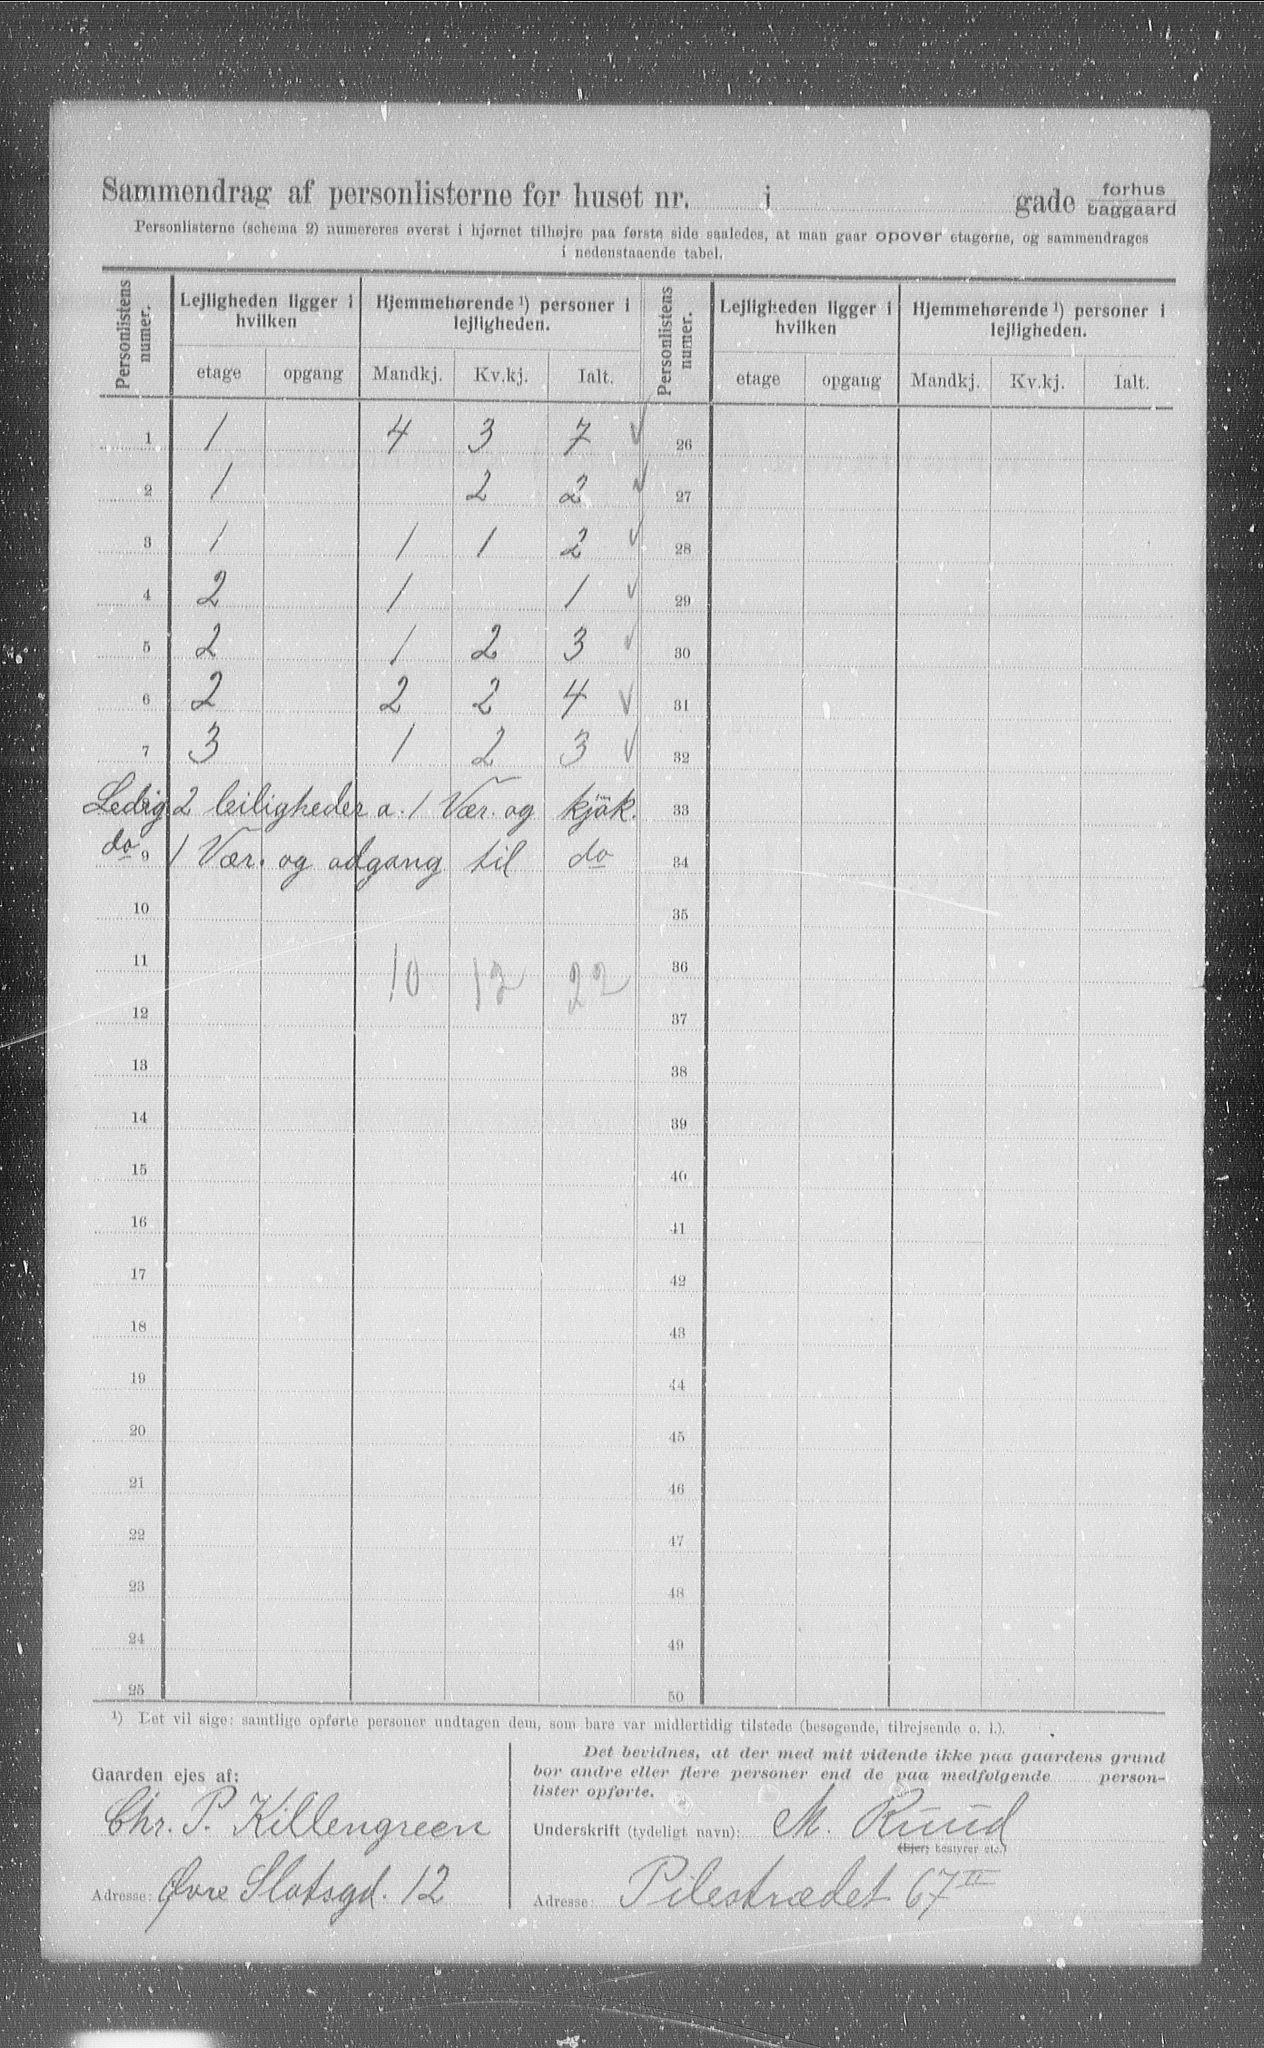 Sammendrag af personlisterne for huset nr. i gade forhus
baggaard
Personlisterne (schema 2) numereres øverst i hjørnet tilhøjre paa første side saaledes, at man gaar opover etagerne, og sammendrages
i nedenstaaende tabel.
Personlistens numer. Lejligheden ligger i hvilken Hjemmehørende ¹) personer i lejligheden. Personlistens numer. Lejligheden ligger i hvilken Hjemmehørende ¹) personer i lejligheden.
etage opgang Mandkj. Kv.kj. Ialt. etage opgang Mandkj. Kv.kj. Ialt.
1 1 4 3 7 ✓ 26
2 1 2 2 ✓ 27
3 1 1 1 2 ✓ 28
4 2 1 1 ✓ 29
5 2 1 2 3 ✓ 30
6 2 2 2 4 ✓ 31
7 3 1 2 3 ✓ 32
Ledig 2 leiligheder a. 1 Vær. og kjøk. 33
do 9 1 Vær. og adgang til do 34
10 35
11 10 12 22 36
12 37
13 38
14 39
15 40
16 41
17 42
18 43
19 44
20 45
21 46
22 47
23 48
24 49
25 50
¹) Det vil sige: samtlige opførte personer undtagen dem, som bare var midlertidig tilstede (besøgende, tilrejsende o. l.).
Gaarden ejes af:
Chr. P. Killengreen
Adresse: Øvre Slotsgd. 12
Det bevidnes, at der med mit vidende ikke paa gaardens grund
bor andre eller flere personer end de paa medfølgende person-
lister opførte.
Underskrift (tydeligt navn): M. Ruud
(Ejer, bestyrer etc.)
Adresse: Pilestrædet 67 II